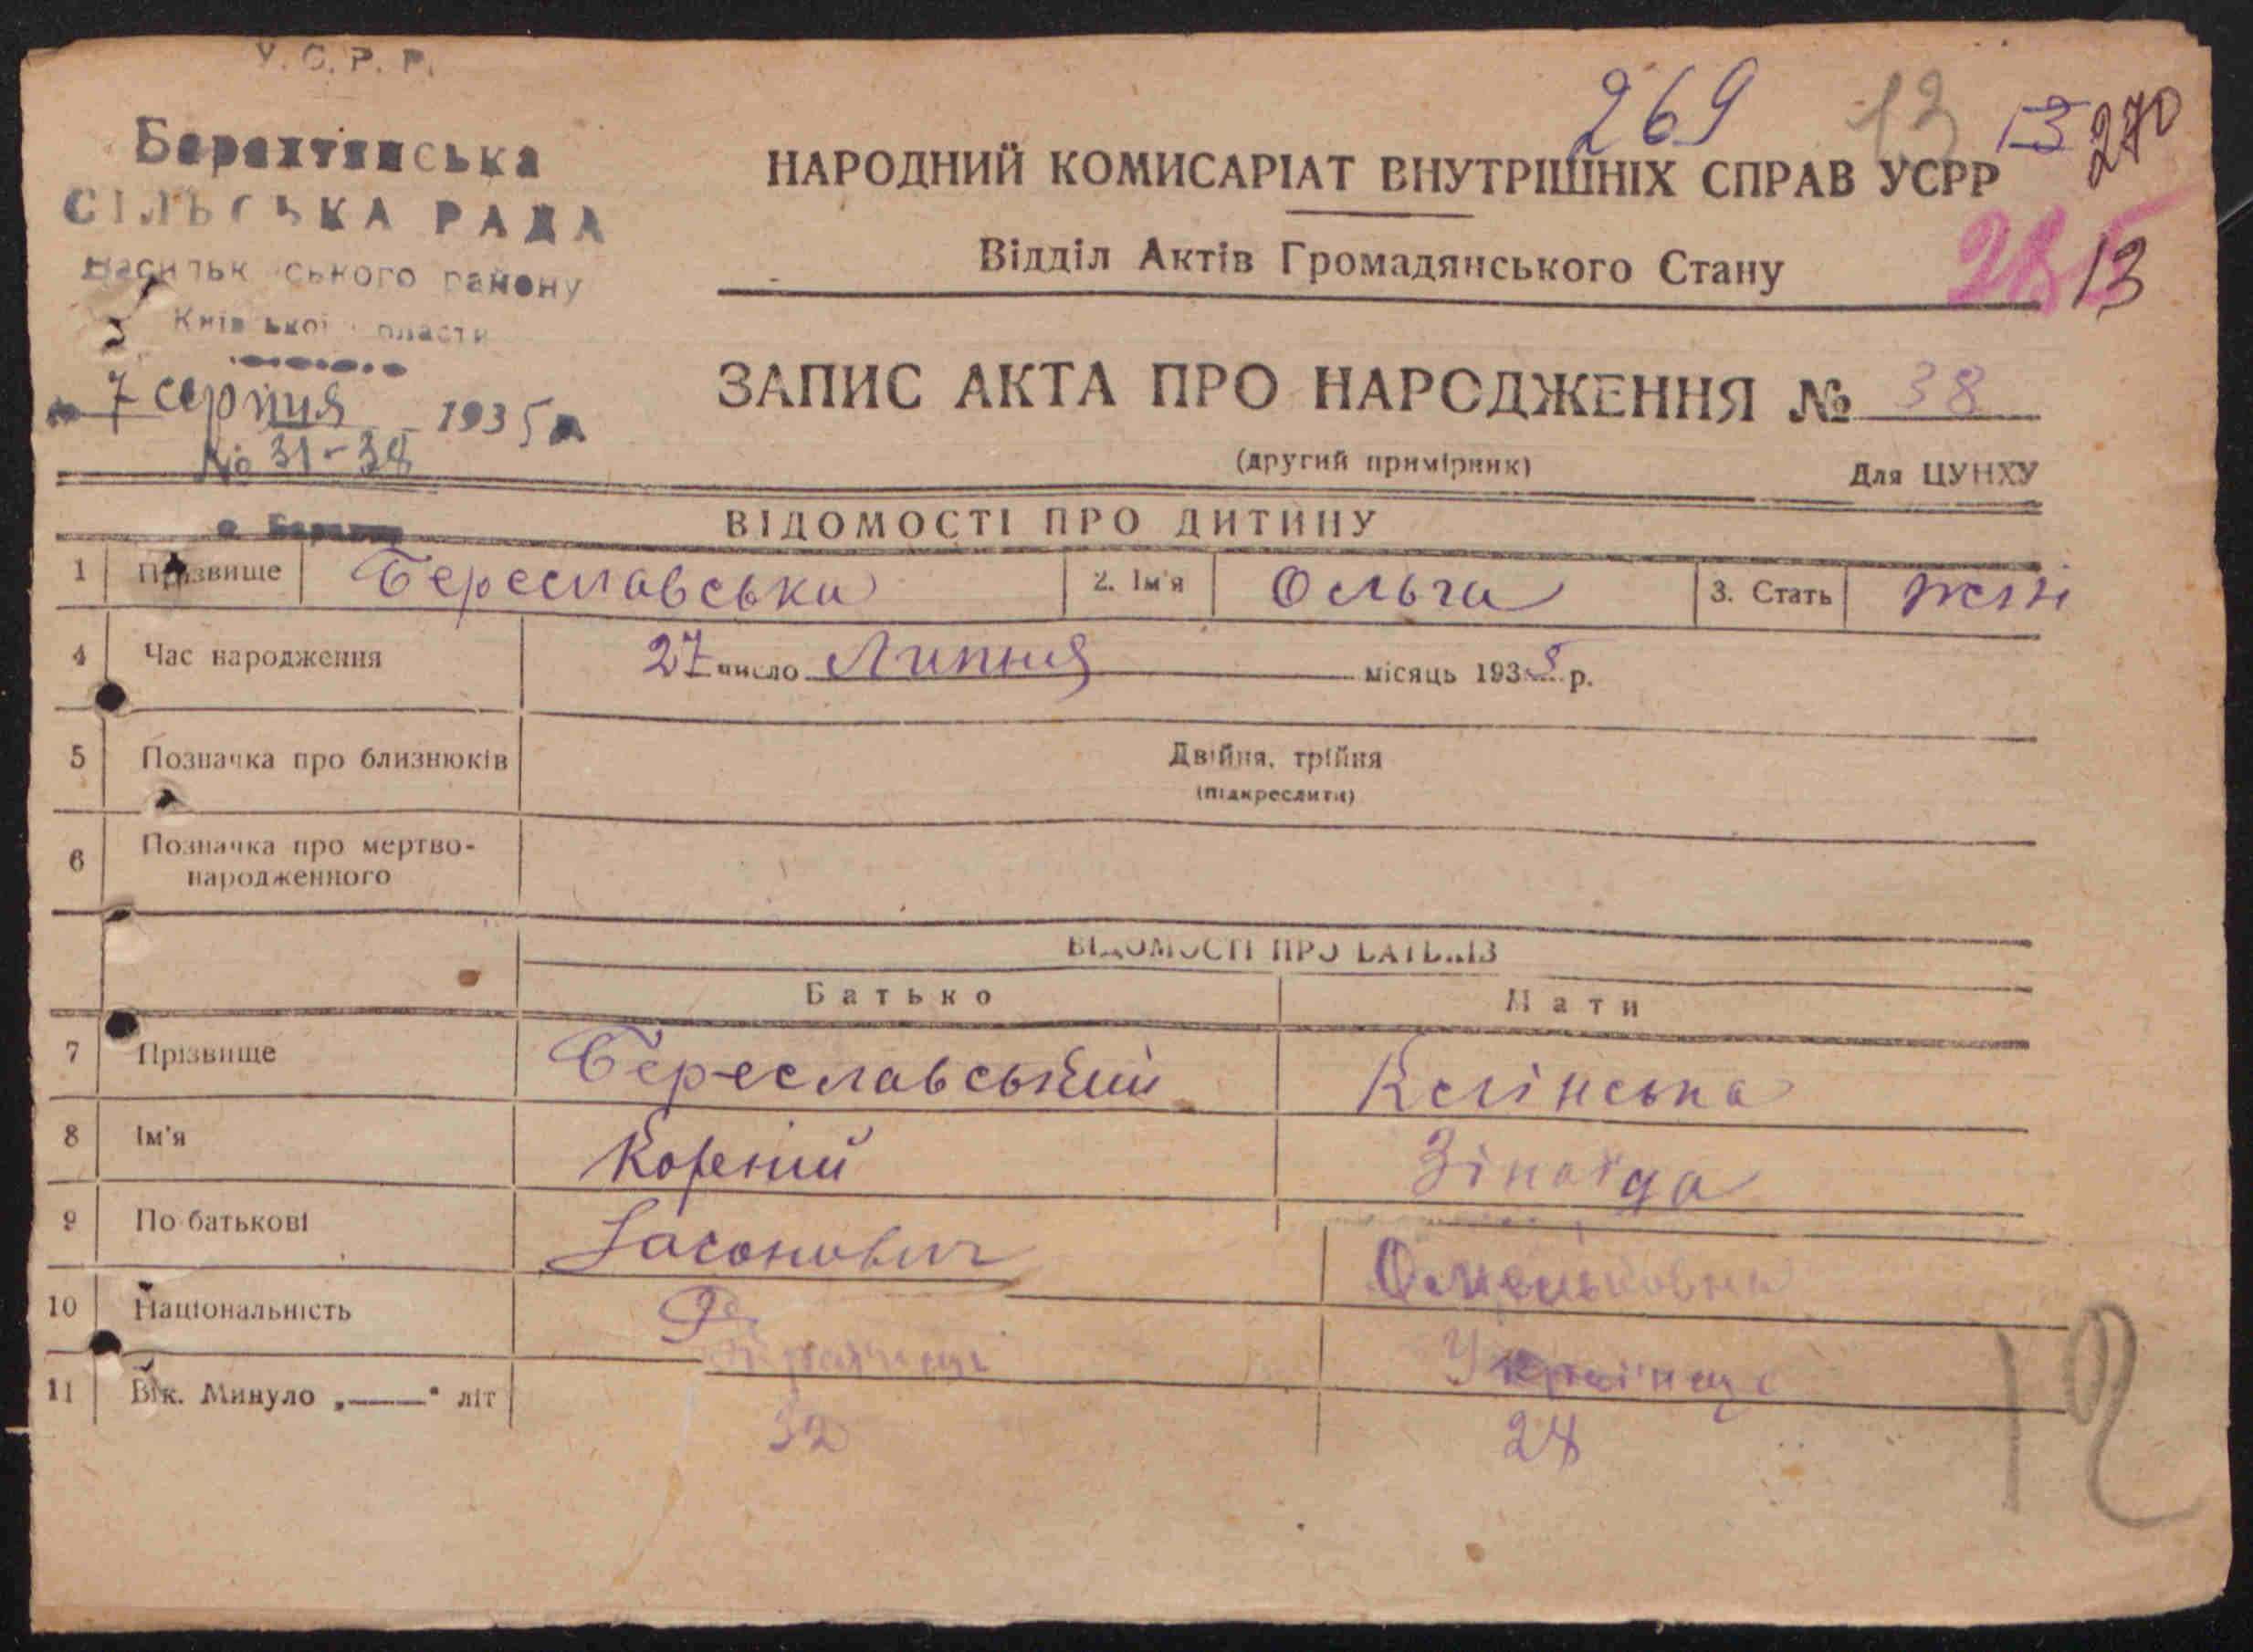 У. С. Р. Р.
Барахтянська
СІЛЬСЬКА РАДА
Васильківського району
Київської області
7 серпня 1935 р
№ 31-38
269 13 13 270
НАРОДНИЙ КОМИСАРІАТ ВНУТРІШНІХ СПРАВ УСРР
Відділ Актів Громадянського Стану
13
ЗАПИС АКТА ПРО НАРОДЖЕННЯ № 38
(другий примірник) Для ЦУНХУ
ВІДОМОСТІ ПРО ДИТИНУ
1 Прізвище Береславська 2. Ім'я Ольга 3. Стать жін
4 Час народження 27 число Липня місяць 1935 р.
5 Позначка про близнюків Двійня, трійня
(підкреслити)
6 Позначка про мертво-
народженного
ВІДОМОСТІ ПРО БАТЬКІВ
Батько Мати
7 Прізвище Береславський Клінська
8 Ім'я Корений Зінаїда
9 По батькові Іасонович
10 Національність Українець Українка
11 Вік. Минуло „——" літ 32 28
12